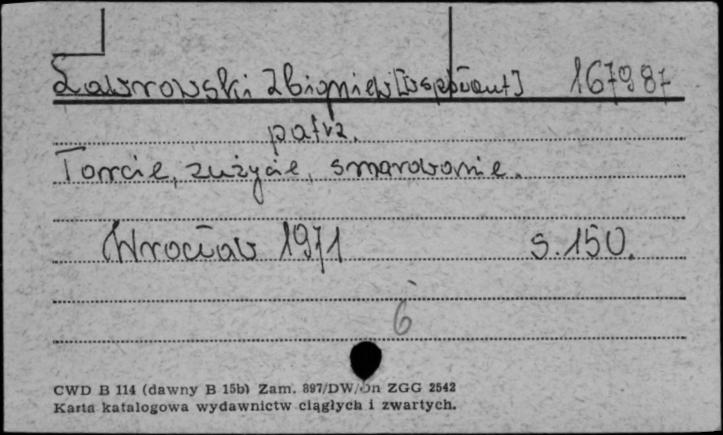 Ławrowski Zbigniew [współaut] 167987
patrz.
Tarcie, zużycie, smarowanie.
Wrocław 1971 s. 150.
6
CWD B 114 (dawny B 15b) Zam. 897/DW/ ZGG 2542
Karta katalogowa wydawnictw ciągłych i zwartych.